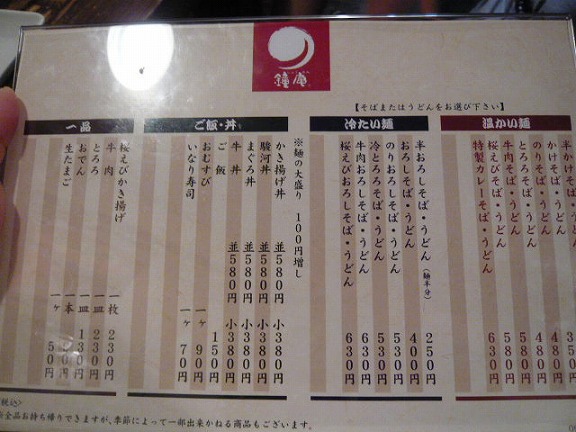 鐘庵
【そばまたはうどんをお選び下さい】
温かい麺
半かけそば・うどん
かけそば・うどん 480円
のりそば・うどん 480円
とろろそば・うどん 580円
牛肉そば・うどん 580円
桜えびそば・うどん 630円
特製カレーそば・うどん
冷たい麺
半おろしそば・うどん(麺半分) 250円
おろしそば・うどん 400円
のりおろしそば・うどん 530円
冷とろろそば・うどん 530円
牛肉おろしそば・うどん 630円
桜えびおろしそば・うどん 630円
※麺の大盛り 100円増し
ご飯・丼
かき揚げ丼 並580円 小380円
駿河丼 並580円 小380円
まぐろ丼 並580円 小380円
牛丼 並580円 小380円
ご飯 150円
おむすび 一ヶ 90円
いなり寿司 一ヶ 70円
一品
桜えびかき揚げ 一枚 230円
牛肉 一皿 230円
とろろ 一皿 130円
おでん 一本
生たまご 一ヶ 50円
税込>
※全品お持ち帰りできますが、季節によって一部出来かねる商品もございます。